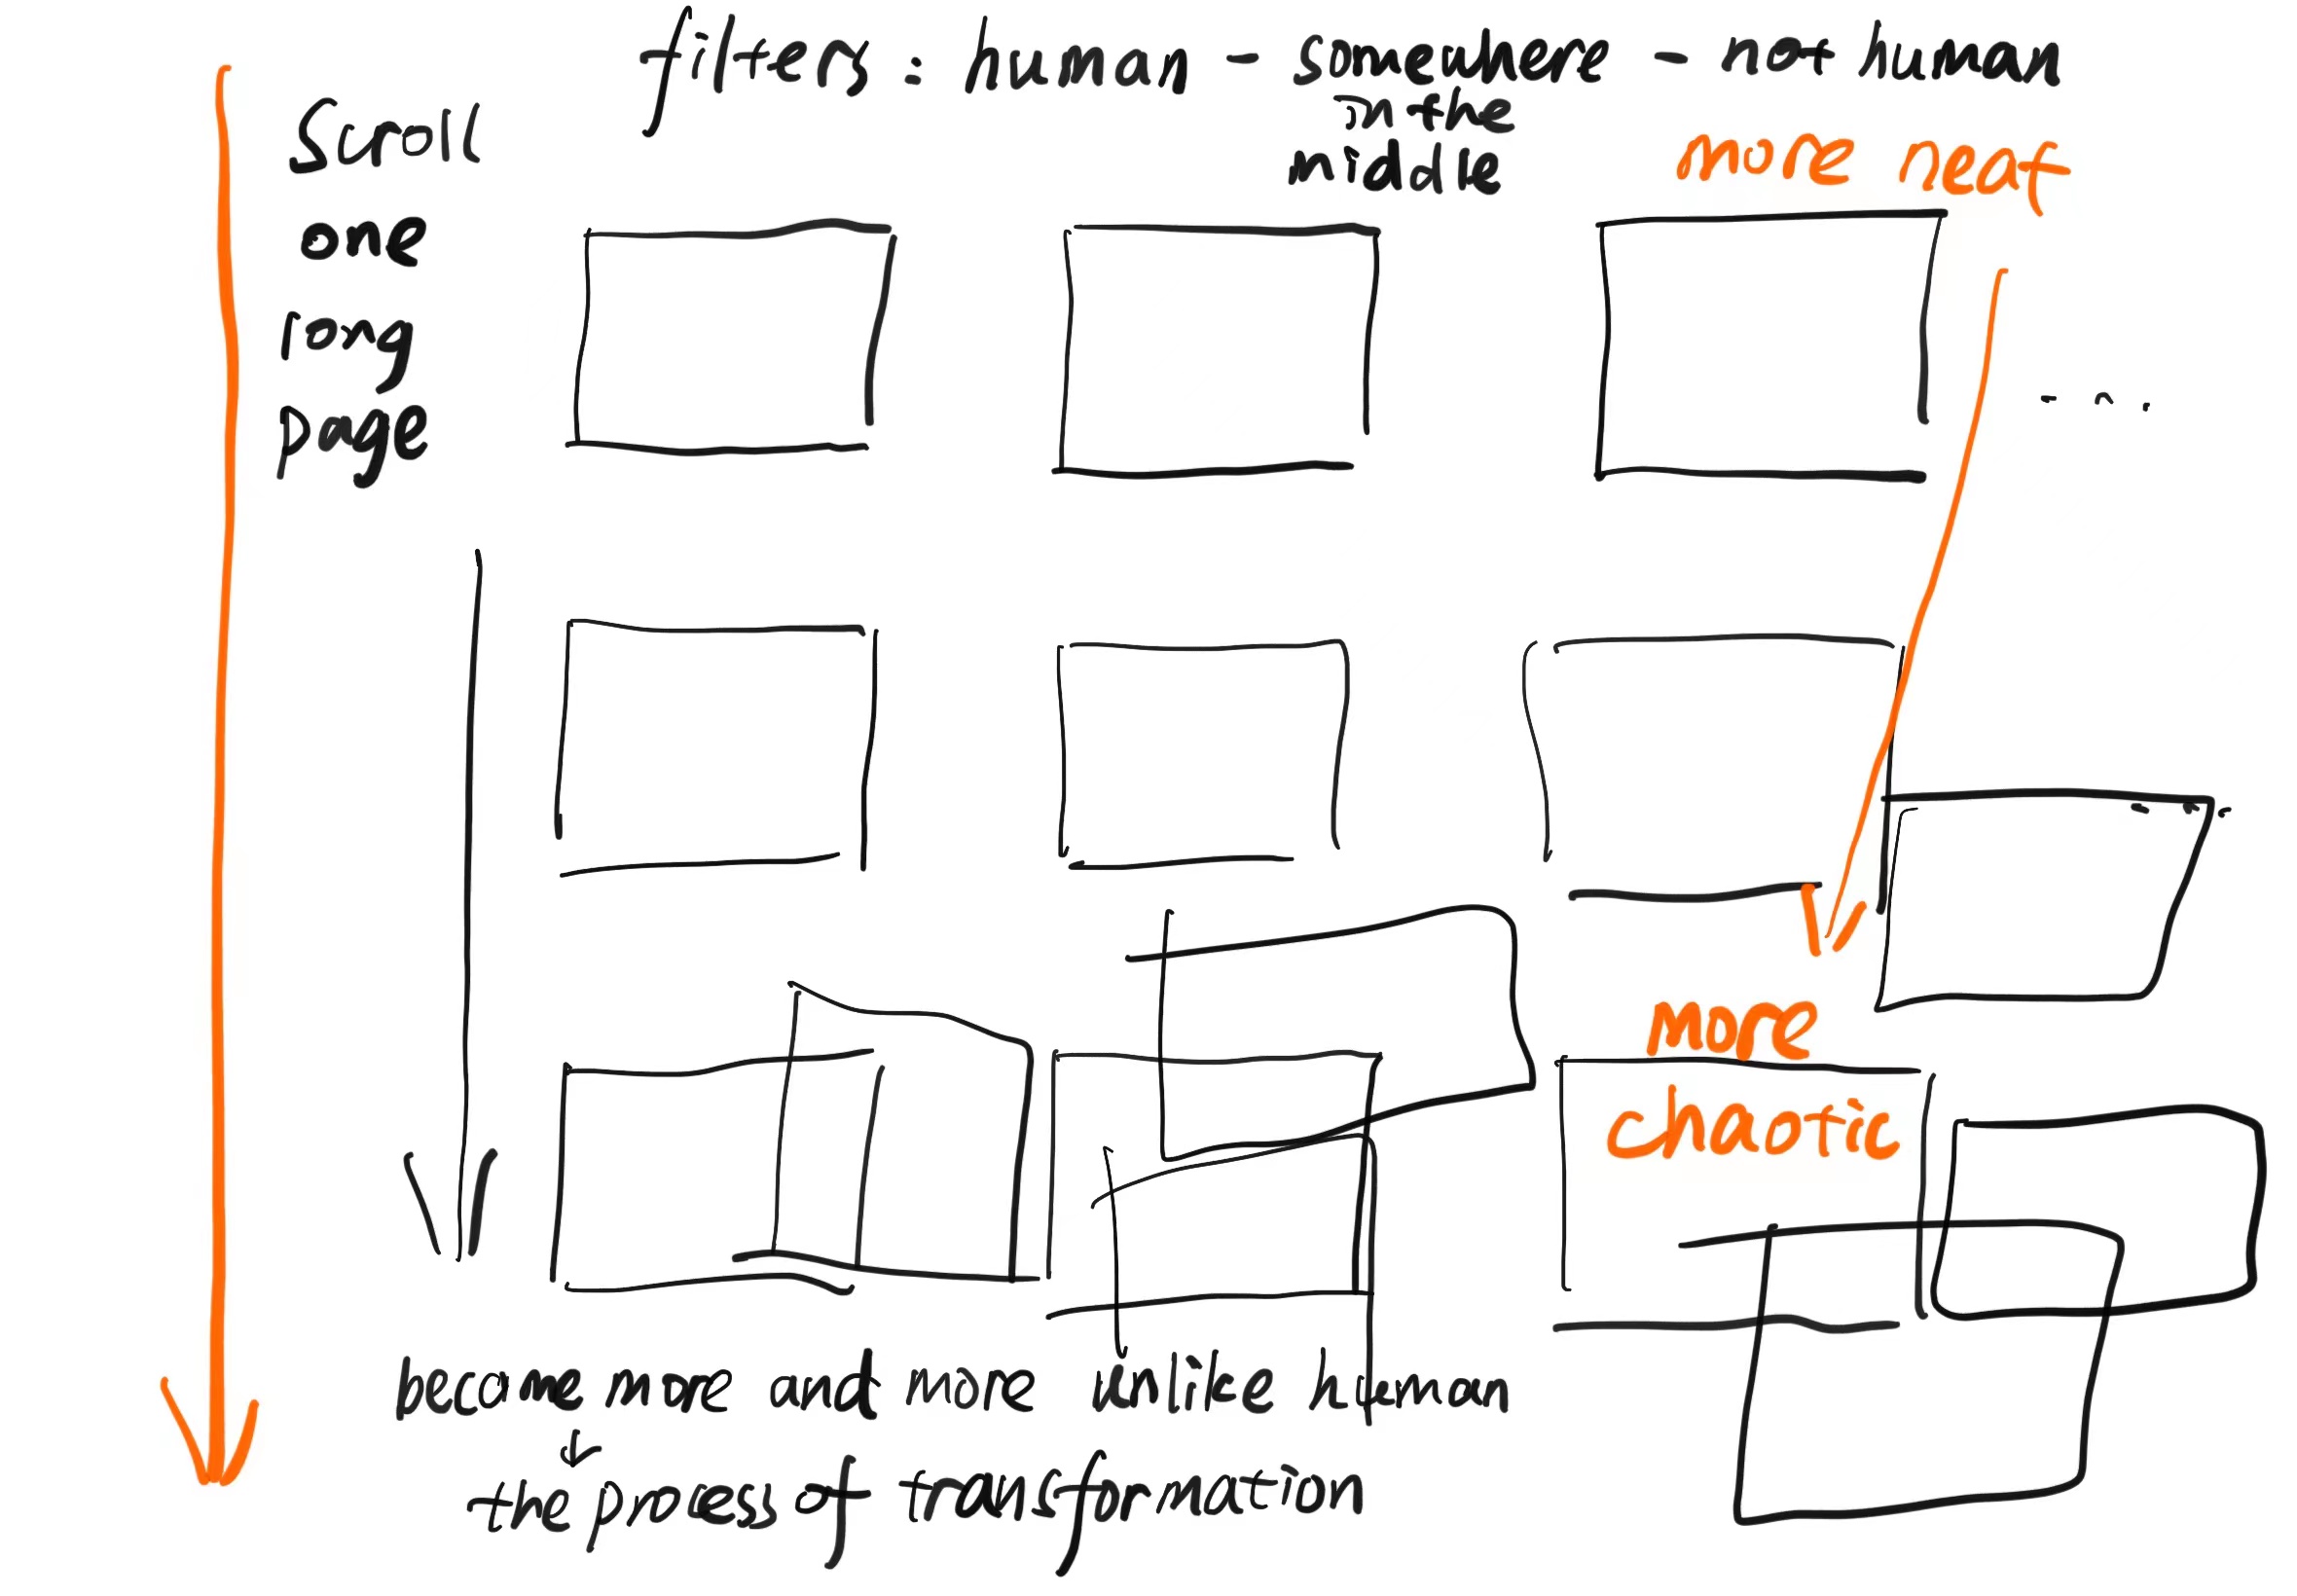 filters : human - somewhere - not human
in the
middle
more neat
Scroll
one
long
page
...
more
chaotic
become more and more unlike human
the process of transformation